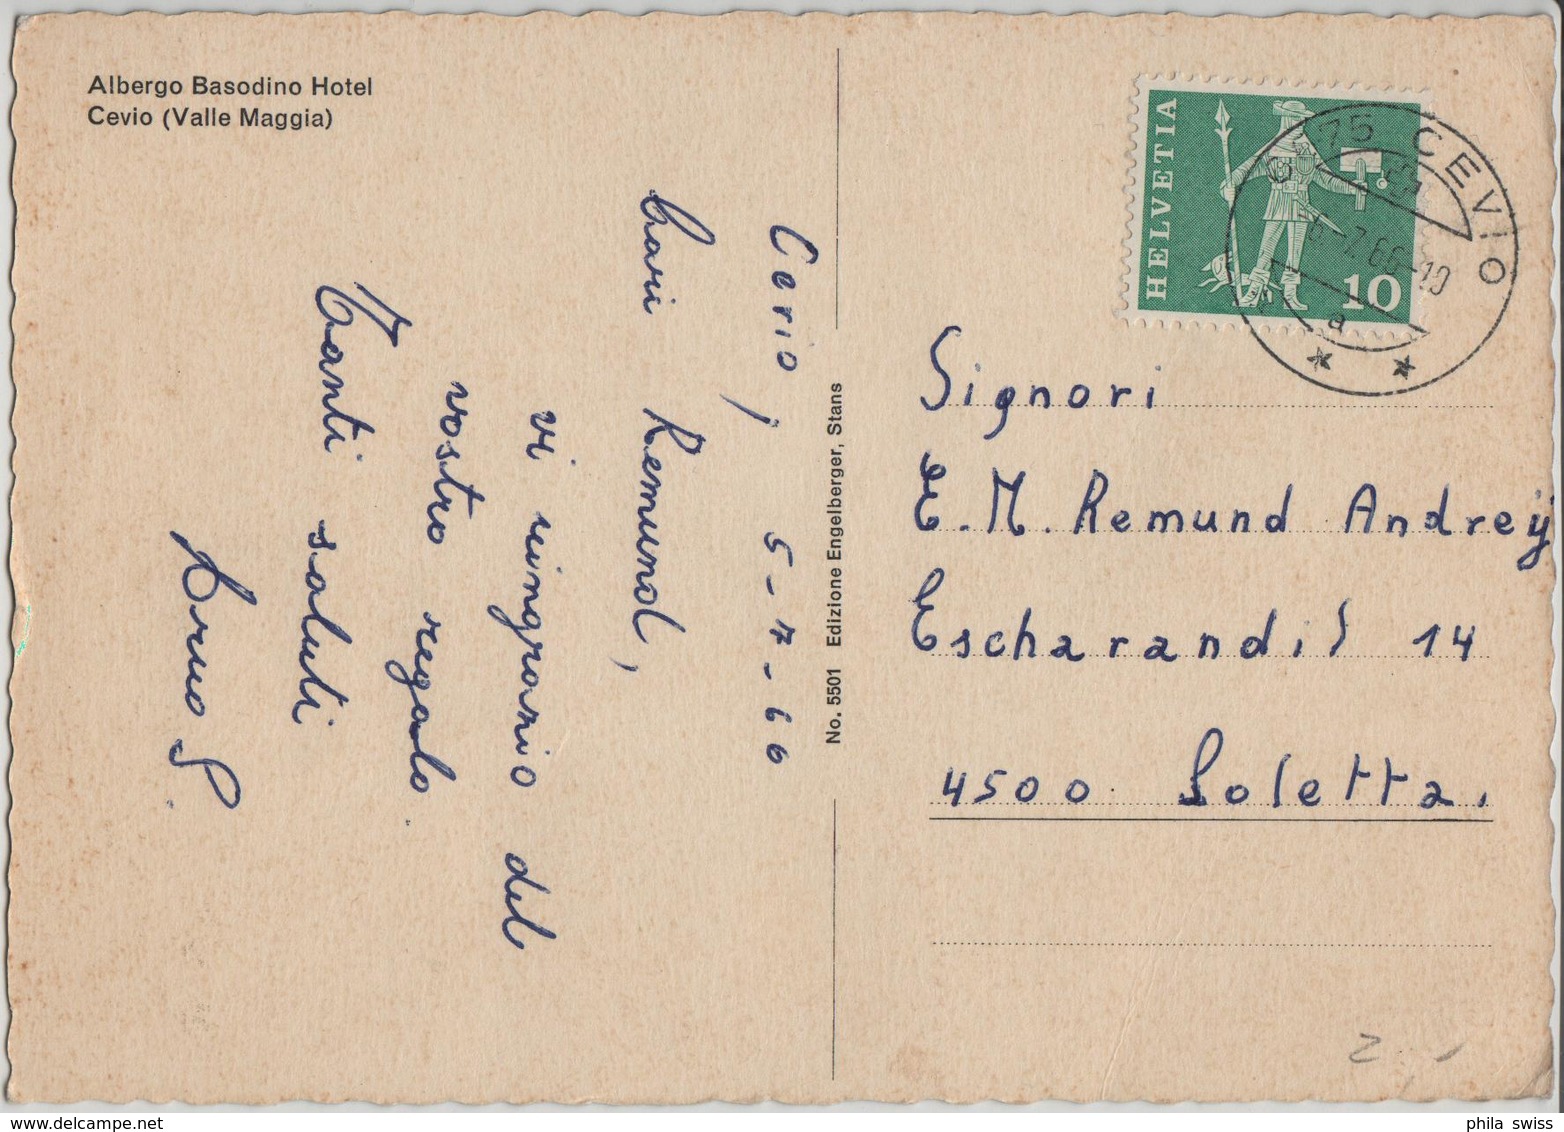 Albergo Basodino Hotel
Cevio (Valle Maggia)
Cevio, 5-7-66
Cari Remund,
vi ringrazio del
vostro regalo.
Tanti saluti
No. 5501 Edizione Engelberger, Stans
HELVETIA
10
6675 CEVIO
6.-7.66-10
a
Signori
E. M. Remund Andreij
Escharandil 14
4500 Soletta.
phila swiss